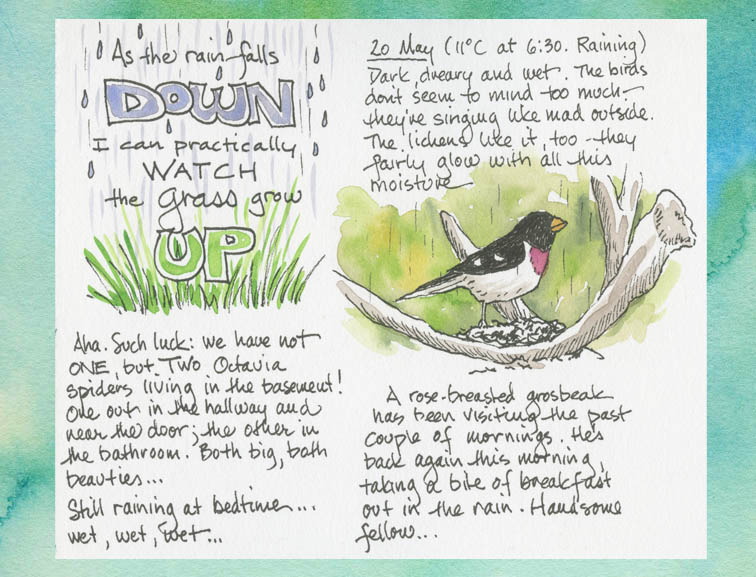 As the rain falls
DOWN
I can practically
WATCH
the grass grow
UP
Aha. Such luck: we have not
ONE, but TWO Octavia
spiders living in the basement!
One out in the hallway and
near the door; the other in
the bathroom. Both big, both
beauties...
Still raining at bedtime...
wet, wet, wet...
20 May (11°C at 6:30. Raining)
Dark, dreary and wet. The birds
don't seem to mind too much -
they're singing like mad outside.
The lichens like it, too - they
fairly glow with all this
moisture
A rose-breasted grosbeak
has been visiting the past
couple of mornings. He's
back again this morning,
taking a bite of breakfast
out in the rain. Handsome
fellow...